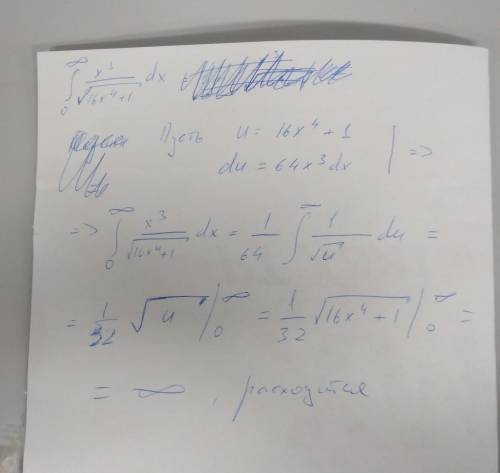 ∫₀^∞ x³/√(16x⁴+1) dx
Пусть u = 16x⁴ + 1
du = 64x³dx | =>
=> ∫₀^∞ x³/√(16x⁴+1) dx = 1/64 ∫^∞ 1/√u du =
= 1/32 √u |₀^∞ = 1/32 √(16x⁴+1) |₀^∞ =
= ∞, расходится